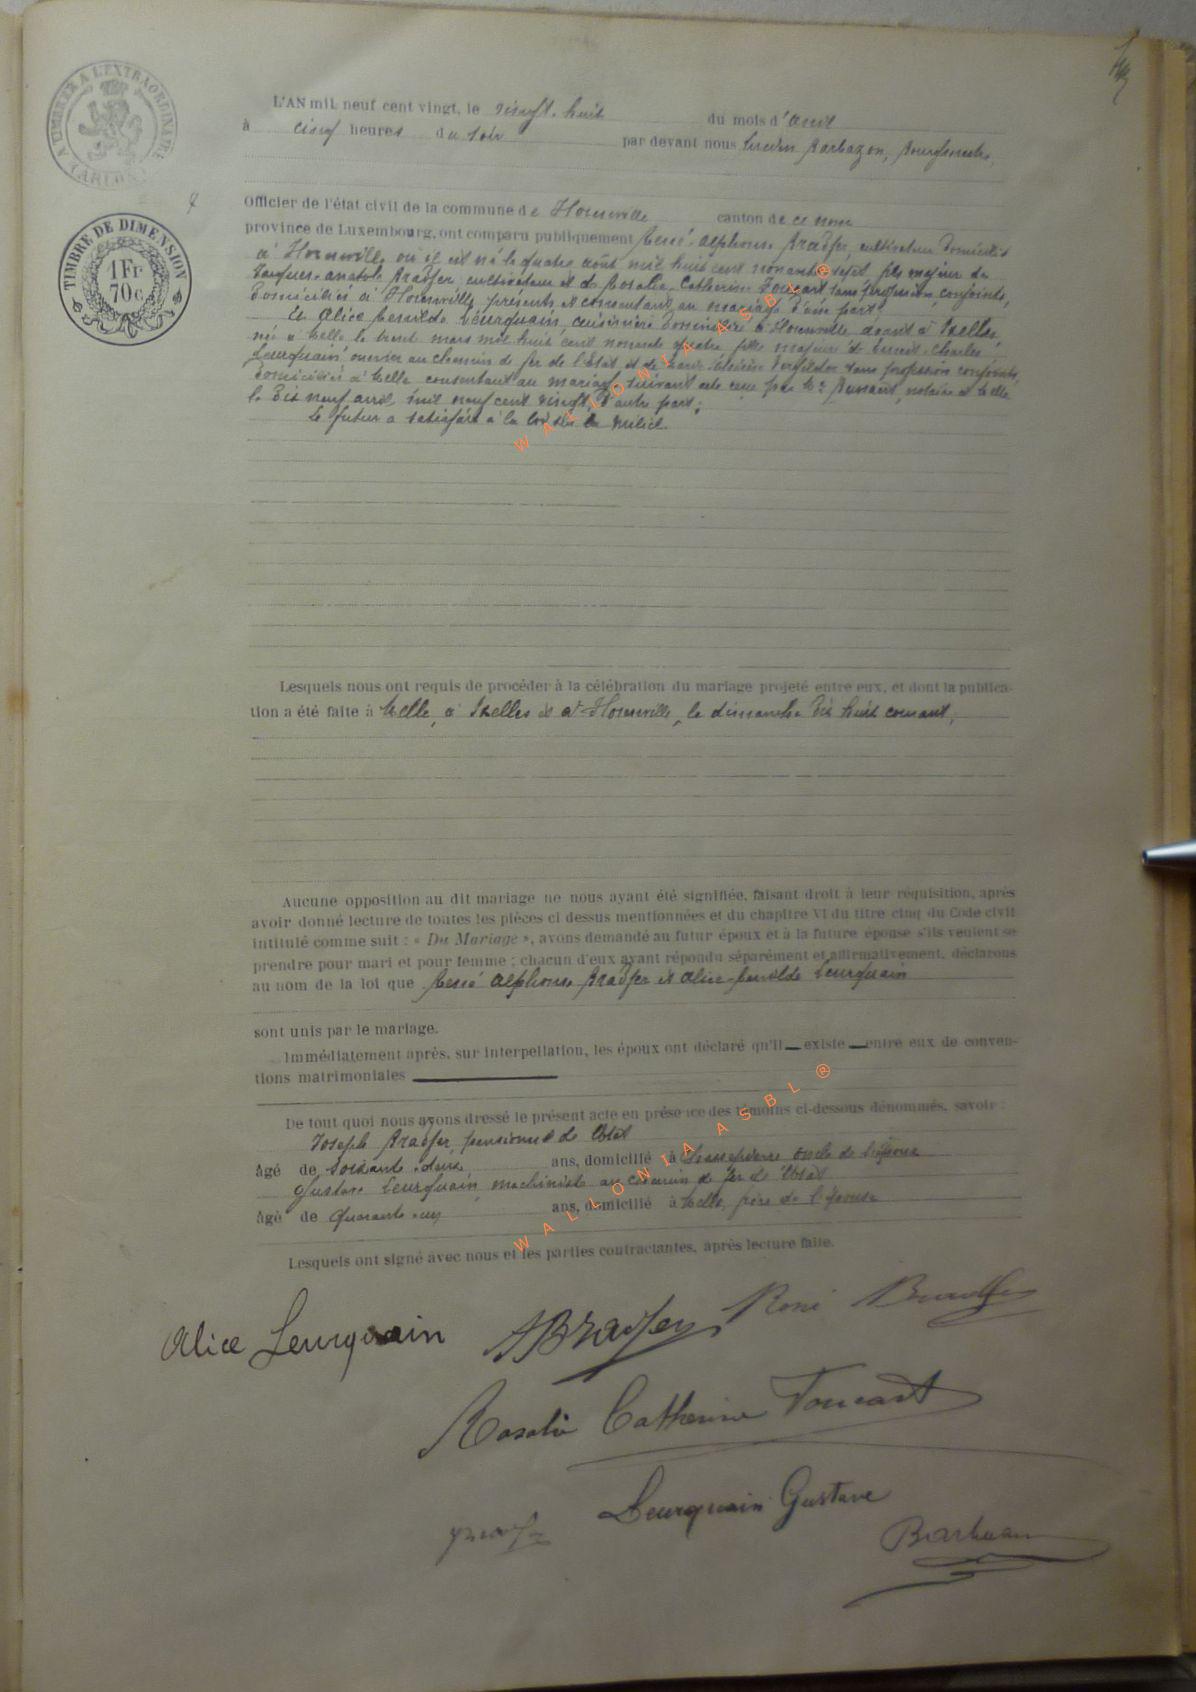 TIMBRER A L'EXTRAORDINAIRE
ARLON
TIMBRE DE DIMENSION
1 Fr
70 c
L'AN mil neuf cent vingt, le vingt-huit du mois d'avril
à cinq heures du soir par devant nous Barbazon, Bourgmestre,
Officier de l'état civil de la commune de canton de ce nom
province de Luxembourg, ont comparu publiquement René-Alphonse cultivateur domicilié
à où il est né le quatre août mil huit cent nonante sept, fils majeur de
Jacques-Anatole cultivateur et de Rosalie Catherine Foucart sans profession, conjoints,
domiciliés à présents et consentant au mariage d'une part;
Et Alice Leurquain, cuisinière domiciliée à avant à Ixelles,
née à Melle le trente mars mil huit cent nonante quatre fille majeure de Benoit-Charles
Leurquain ouvrier au chemin de fer de l'Etat et de sans profession conjoints,
domiciliés à Melle consentant au mariage suivant acte reçu par Me notaire à Melle
le dix neuf avril mil neuf cent vingt, d'autre part;
Le futur a satisfait à la loi sur la milice.
Lesquels nous ont requis de procéder à la célébration du mariage projeté entre eux, et dont la publica-
tion a été faite à Melle, à Ixelles et à le dimanche dix huit courant,
Aucune opposition au dit mariage ne nous ayant été signifiée, faisant droit à leur réquisition, après
avoir donné lecture de toutes les pièces ci dessus mentionnées et du chapitre VI du titre cinq du Code civil
intitulé comme suit : « Du Mariage », avons demandé au futur époux et à la future épouse s'ils veulent se
prendre pour mari et pour femme ; chacun d'eux ayant répondu séparément et affirmativement, déclarons
au nom de la loi que René Alphonse et Alice Leurquain
sont unis par le mariage.
Immédiatement après, sur interpellation, les époux ont déclaré qu'il existe entre eux de conven-
tions matrimoniales
De tout quoi nous avons dressé le présent acte en présence des témoins ci-dessous dénommés, savoir :
Joseph pensionné de l'Etat
âgé de soixante-deux ans, domicilié à oncle de l'époux
Gustave Leurquain, machiniste au chemin de fer de l'Etat
âgé de quarante-un ans, domicilié à Melle, de l'épouse
Lesquels ont signé avec nous et les parties contractantes, après lecture faite.
Alice Leurquain René
Rosalie Catherine Foucart
Leurquain Gustave
WALLONIA ASBL ®
WALLONIA ASBL ®